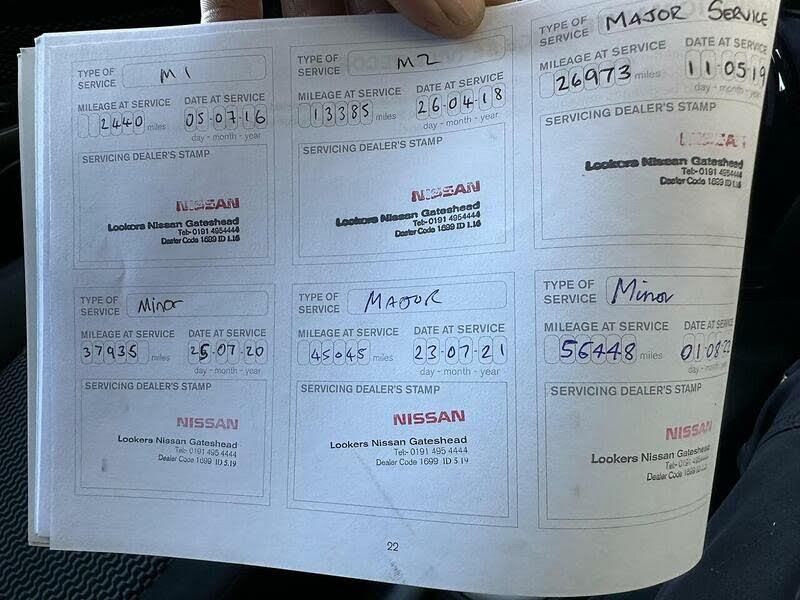 TYPE OF SERVICE M1
MILEAGE AT SERVICE DATE AT SERVICE
2440 miles 05-07-16
day - month - year
SERVICING DEALER'S STAMP
NISSAN
Lookers Nissan Gateshead
Tel:- 0191 4954444
Dealer Code 1699 ID 1.16
TYPE OF SERVICE M2
MILEAGE AT SERVICE DATE AT SERVICE
13385 miles 26-04-18
day - month - year
SERVICING DEALER'S STAMP
NISSAN
Lookers Nissan Gateshead
Tel:- 0191 4954444
Dealer Code 1699 ID 1.16
TYPE OF SERVICE MAJOR SERVICE
MILEAGE AT SERVICE DATE AT SERVICE
26973 miles 11-05-19
day - month - year
SERVICING DEALER'S STAMP
NISSAN
Lookers Nissan Gateshead
Tel:- 0191 4954444
Dealer Code 1699 ID 1.16
TYPE OF SERVICE Minor
MILEAGE AT SERVICE DATE AT SERVICE
37935 miles 25-07-20
day - month - year
SERVICING DEALER'S STAMP
NISSAN
Lookers Nissan Gateshead
Tel:- 0191 495 4444
Dealer Code 1699 ID 5.19
TYPE OF SERVICE MAJOR
MILEAGE AT SERVICE DATE AT SERVICE
45045 miles 23-07-21
day - month - year
SERVICING DEALER'S STAMP
NISSAN
Lookers Nissan Gateshead
Tel:- 0191 495 4444
Dealer Code 1699 ID 5.19
TYPE OF SERVICE Minor
MILEAGE AT SERVICE DATE AT SERVICE
56448 miles 01-08-22
day - month - year
SERVICING DEALER'S STAMP
NISSAN
Lookers Nissan Gateshead
Tel:- 0191 495 4444
Dealer Code 1699
22